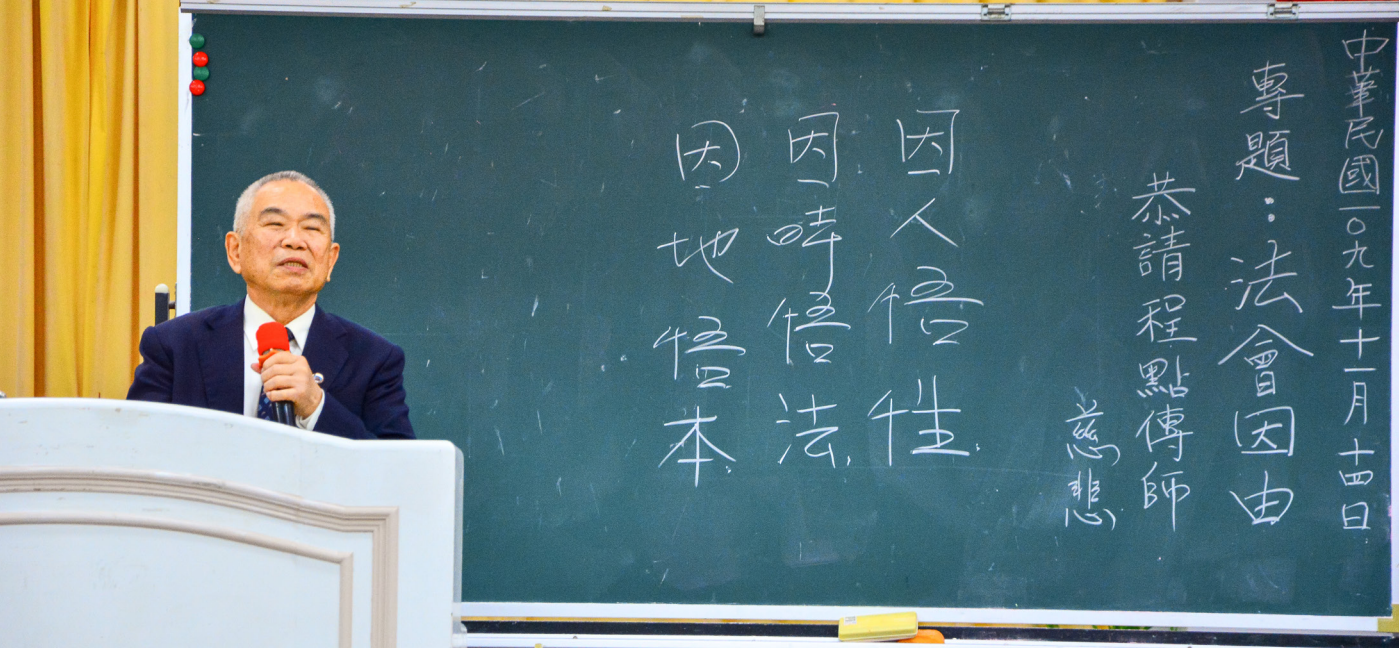 中華民國一〇九年十一月十四日
專題：法會因由
恭請程點傳師
慈悲
因人悟性
因時悟法
因地悟本